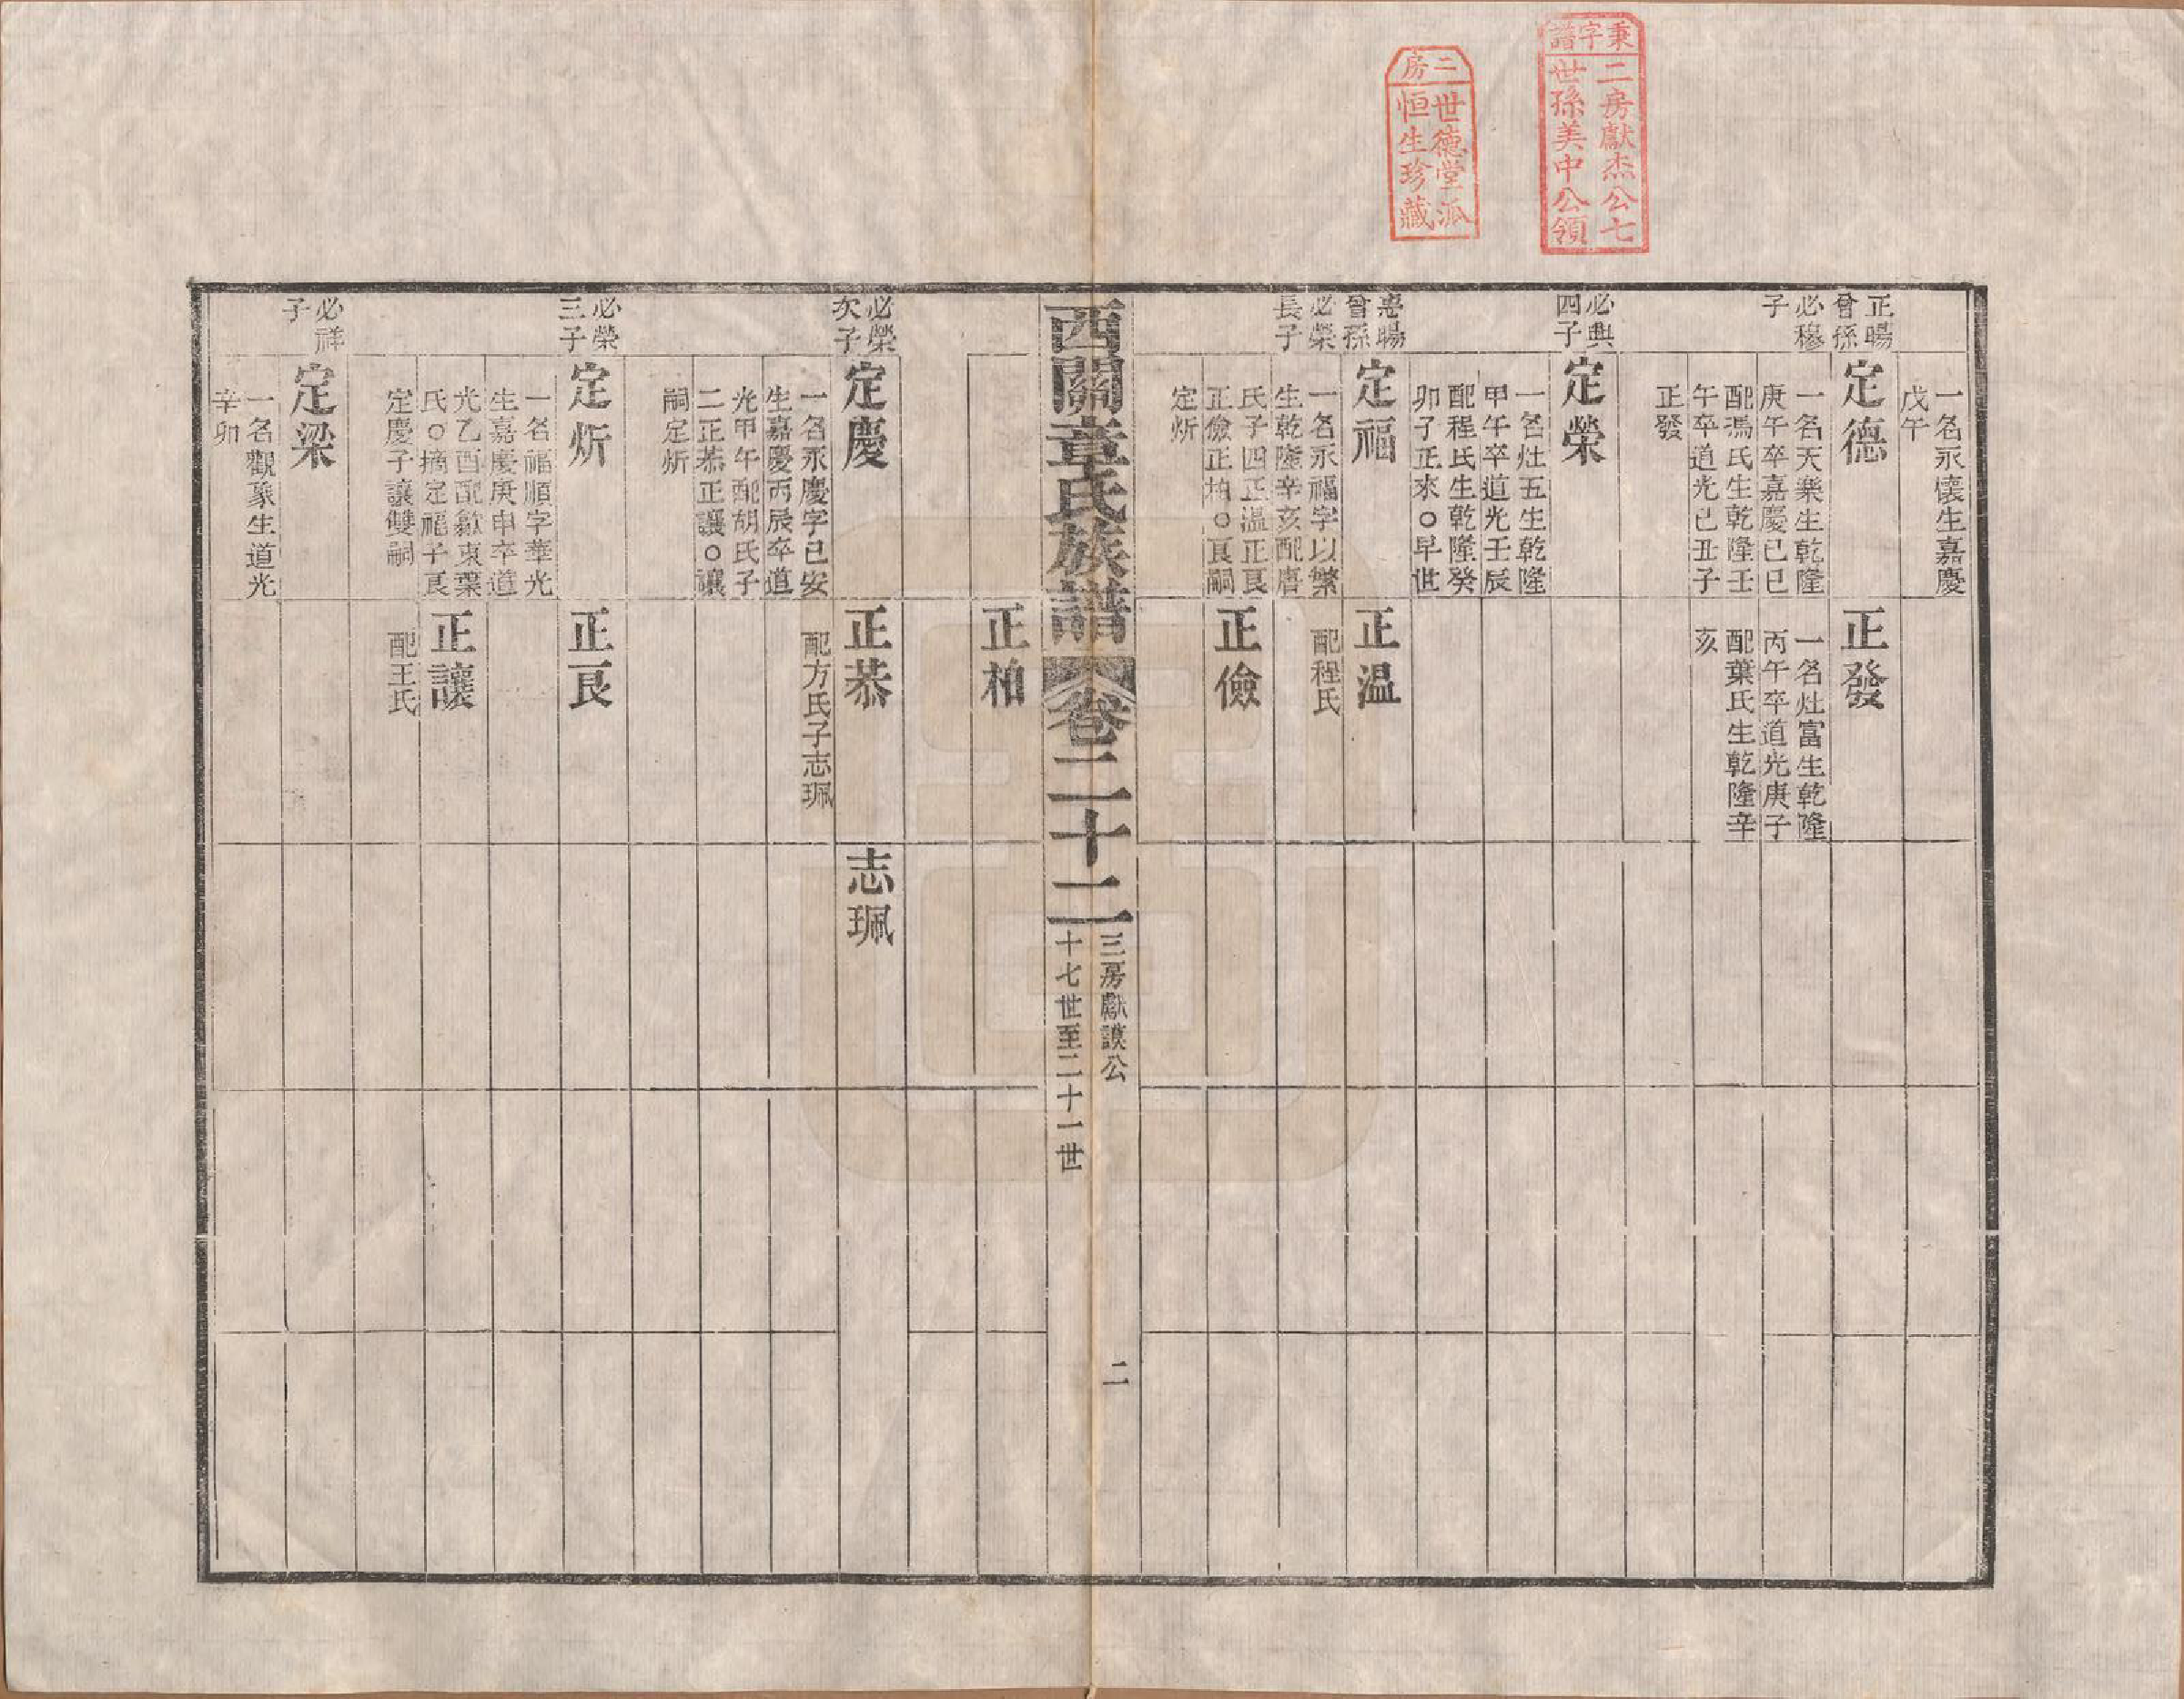 秉字譜
二房獻杰公七
世孫美中公領
二房
世德堂派
恒生珍藏
一名永懷生嘉慶
戊午
正暘
曾孫
必穆
子
定德
一名天樂生乾隆
庚午卒嘉慶已巳
配馮氏生乾隆壬
午卒道光已丑子
正發
正發
一名灶富生乾隆
丙午卒道光庚子
配葉氏生乾隆辛
亥
必興
四子
定榮
一名灶五生乾隆
甲午卒道光壬辰
配程氏生乾隆癸
卯子正來○早世
思暘
曾孫
必榮
長子
定福
一名永福字以繁
生乾隆辛亥配唐
氏子四正温正艮
正儉正柏○艮嗣
定炘
正温
配程氏
正儉
西關章氏族譜
卷二十二
三房獻謨公
十七世至二十一世
二
正柏
必榮
次子
定慶
一名永慶字已安
生嘉慶丙辰卒道
光甲午配胡氏子
二正恭正讓○讓
嗣定炘
正恭
配方氏子志珮
志珮
必榮
三子
定炘
一名福順字華光
生嘉慶庚申卒道
光乙酉配歙東葉
氏○摘定福子艮
定慶子讓雙嗣
正艮
正讓
配王氏
必祥
子
定梁
一名觀象生道光
辛卯